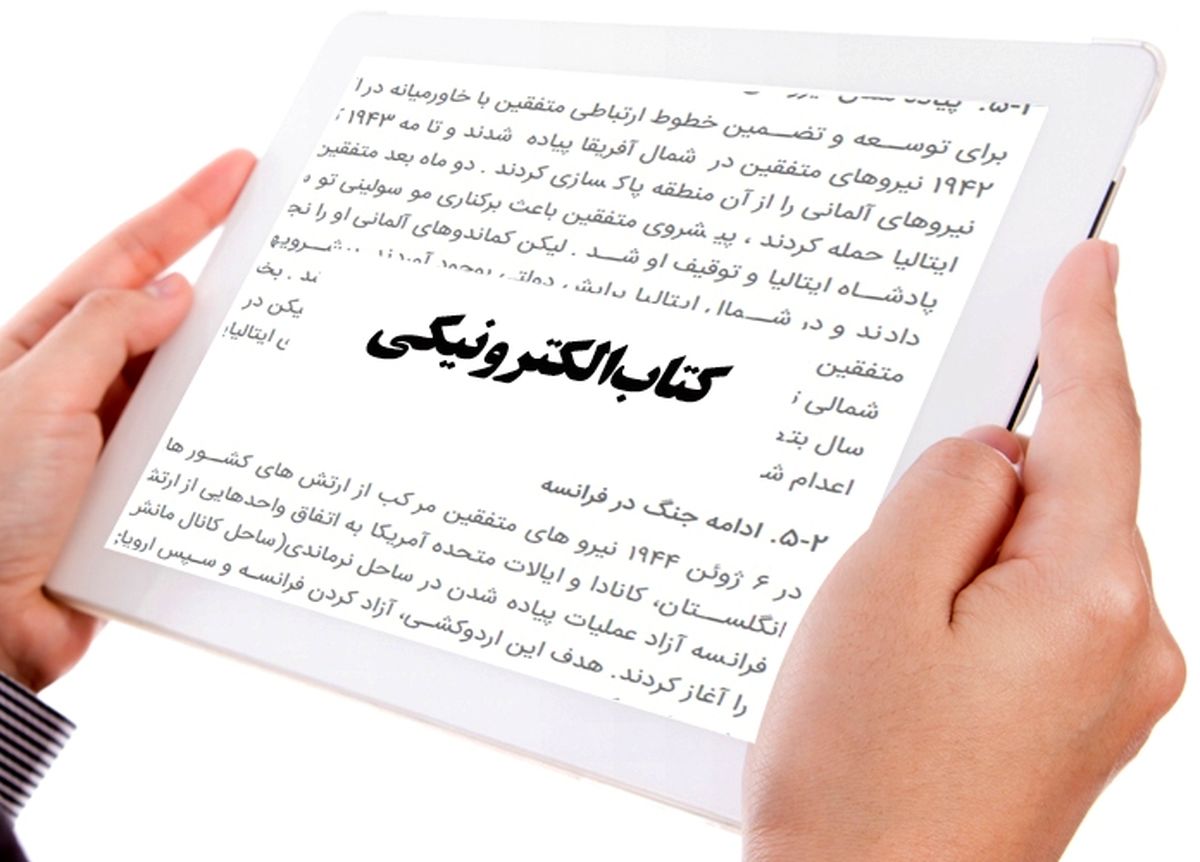 ۵-۱. پیاده شدن
برای توسعه و تضمین خطوط ارتباطی متفقین با خاورمیانه در
۱۹۴۲ نیروهای متفقین در شمال آفریقا پیاده شدند و تا مه ۱۹۴۳
نیروهای آلمانی را از آن منطقه پاک سازی کردند . دو ماه بعد متفقین
ایتالیا حمله کردند ، پیشروی متفقین باعث برکناری مو سولینی تو
پادشاه ایتالیا و توقیف او شد . لیکن کماندوهای آلمانی او را
دادند و در شمال ایتالیا برایش دولتی بوجود آوردند
متفقین
شمالی
سال
اعدام
لیکن در
کتاب الکترونیکی
۵-۲. ادامه جنگ در فرانسه
در ۶ ژوئن ۱۹۴۴ نیرو های متفقین مرکب از ارتش های کشور ها
انگلستان، کانادا و ایالات متحده آمریکا به اتفاق واحدهایی از ارتش
فرانسه آزاد عملیات پیاده شدن در ساحل نرماندی(ساحل کانال مانش
را آغاز کردند. هدف این اردوکشی، آزاد کردن فرانسه و سپس اروپا